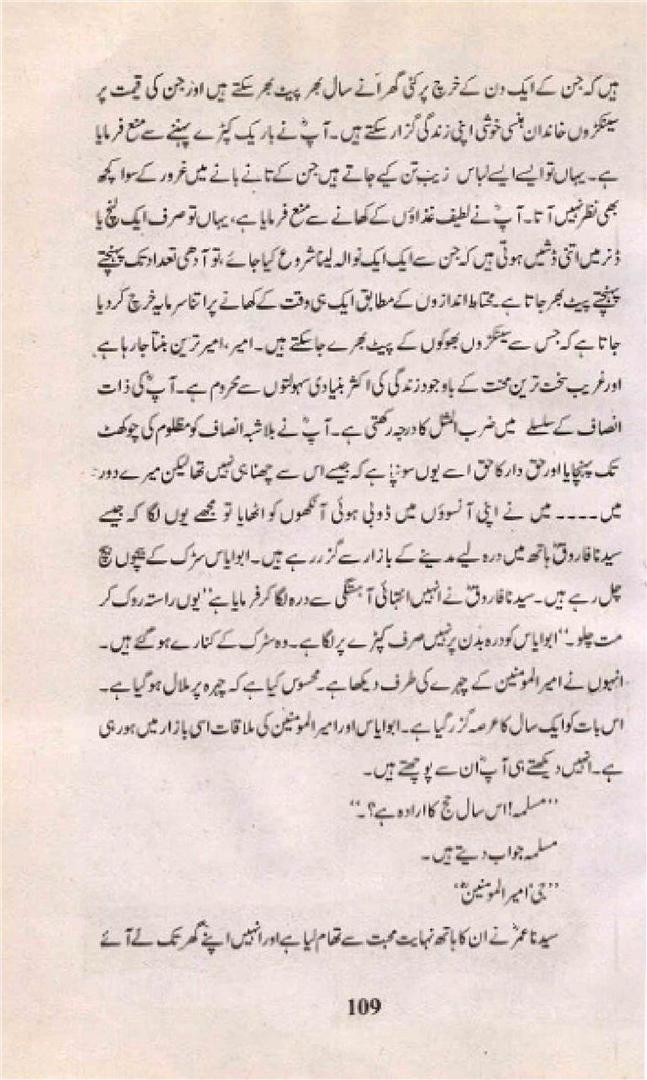 ہیں کہ جن کے ایک دن کے خرچ پر کئی گھرانے سال بھر پیٹ بھر سکتے ہیں اور جن کی قیمت پر
سینکڑوں خاندان ہنسی خوشی اپنی زندگی گزار سکتے ہیں۔ آپؓ نے باریک کپڑے پہننے سے منع فرمایا
ہے۔ یہاں تو ایسے ایسے لباس زیب تن کیے جاتے ہیں جن کے تانے بانے میں غرور کے سوا کچھ
بھی نظر نہیں آتا۔ آپؓ نے لطیف غذاؤں کے کھانے سے منع فرمایا ہے، یہاں تو صرف ایک لنچ یا
ڈنر میں اتنی ڈشیں ہوتی ہیں کہ جن سے ایک ایک نوالہ لینا شروع کیا جائے، تو آدھی تعداد تک پہنچتے
پہنچتے پیٹ بھر جاتا ہے۔ محتاط اندازوں کے مطابق ایک ہی وقت کے کھانے پر اتنا سرمایہ خرچ کر دیا
جاتا ہے کہ جس سے سینکڑوں بھوکوں کے پیٹ بھرے جا سکتے ہیں۔ امیر، امیر ترین بنتا جا رہا ہے
اور غریب سخت ترین محنت کے باوجود زندگی کی اکثر بنیادی سہولتوں سے محروم ہے۔ آپؓ کی ذات
انصاف کے سلسلے میں ضرب المثل کا درجہ رکھتی ہے۔ آپؓ نے بلاشبہ انصاف کو مظلوم کی چوکھٹ
تک پہنچایا اور حق دار کا حق اسے یوں سونپا ہے کہ جیسے اس سے چھنا ہی نہیں تھا لیکن میرے دور
میں۔۔۔۔ میں نے اپنی آنسوؤں میں ڈوبی ہوئی آنکھوں کو اٹھایا تو مجھے یوں لگا کہ جیسے
سیدنا فاروقؓ ہاتھ میں درہ لیے مدینے کے بازار سے گزر رہے ہیں۔ ابوایاس سڑک کے بیچوں بیچ
چل رہے ہیں۔ سیدنا فاروقؓ نے انہیں انتہائی آہستگی سے درہ لگا کر فرمایا ہے ”یوں راستہ روک کر
مت چلو۔“ ابوایاس کو درہ بدن پر نہیں صرف کپڑے پر لگا ہے۔ وہ سڑک کے کنارے ہو گئے ہیں۔
انہوں نے امیر المومنین کے چہرے کی طرف دیکھا ہے۔ محسوس کیا ہے کہ چہرہ پر ملال ہو گیا ہے۔
اس بات کو ایک سال کا عرصہ گزر گیا ہے۔ ابوایاس اور امیر المومنینؓ کی ملاقات اسی بازار میں ہو رہی
ہے۔ انہیں دیکھتے ہی آپؓ ان سے پوچھتے ہیں۔
”مسلمہ! اس سال حج کا ارادہ ہے؟۔“
مسلمہ جواب دیتے ہیں۔
”جی امیر المومنینؓ“
سیدنا عمرؓ نے ان کا ہاتھ نہایت محبت سے تھام لیا ہے اور انہیں اپنے گھر تک لے آئے
109